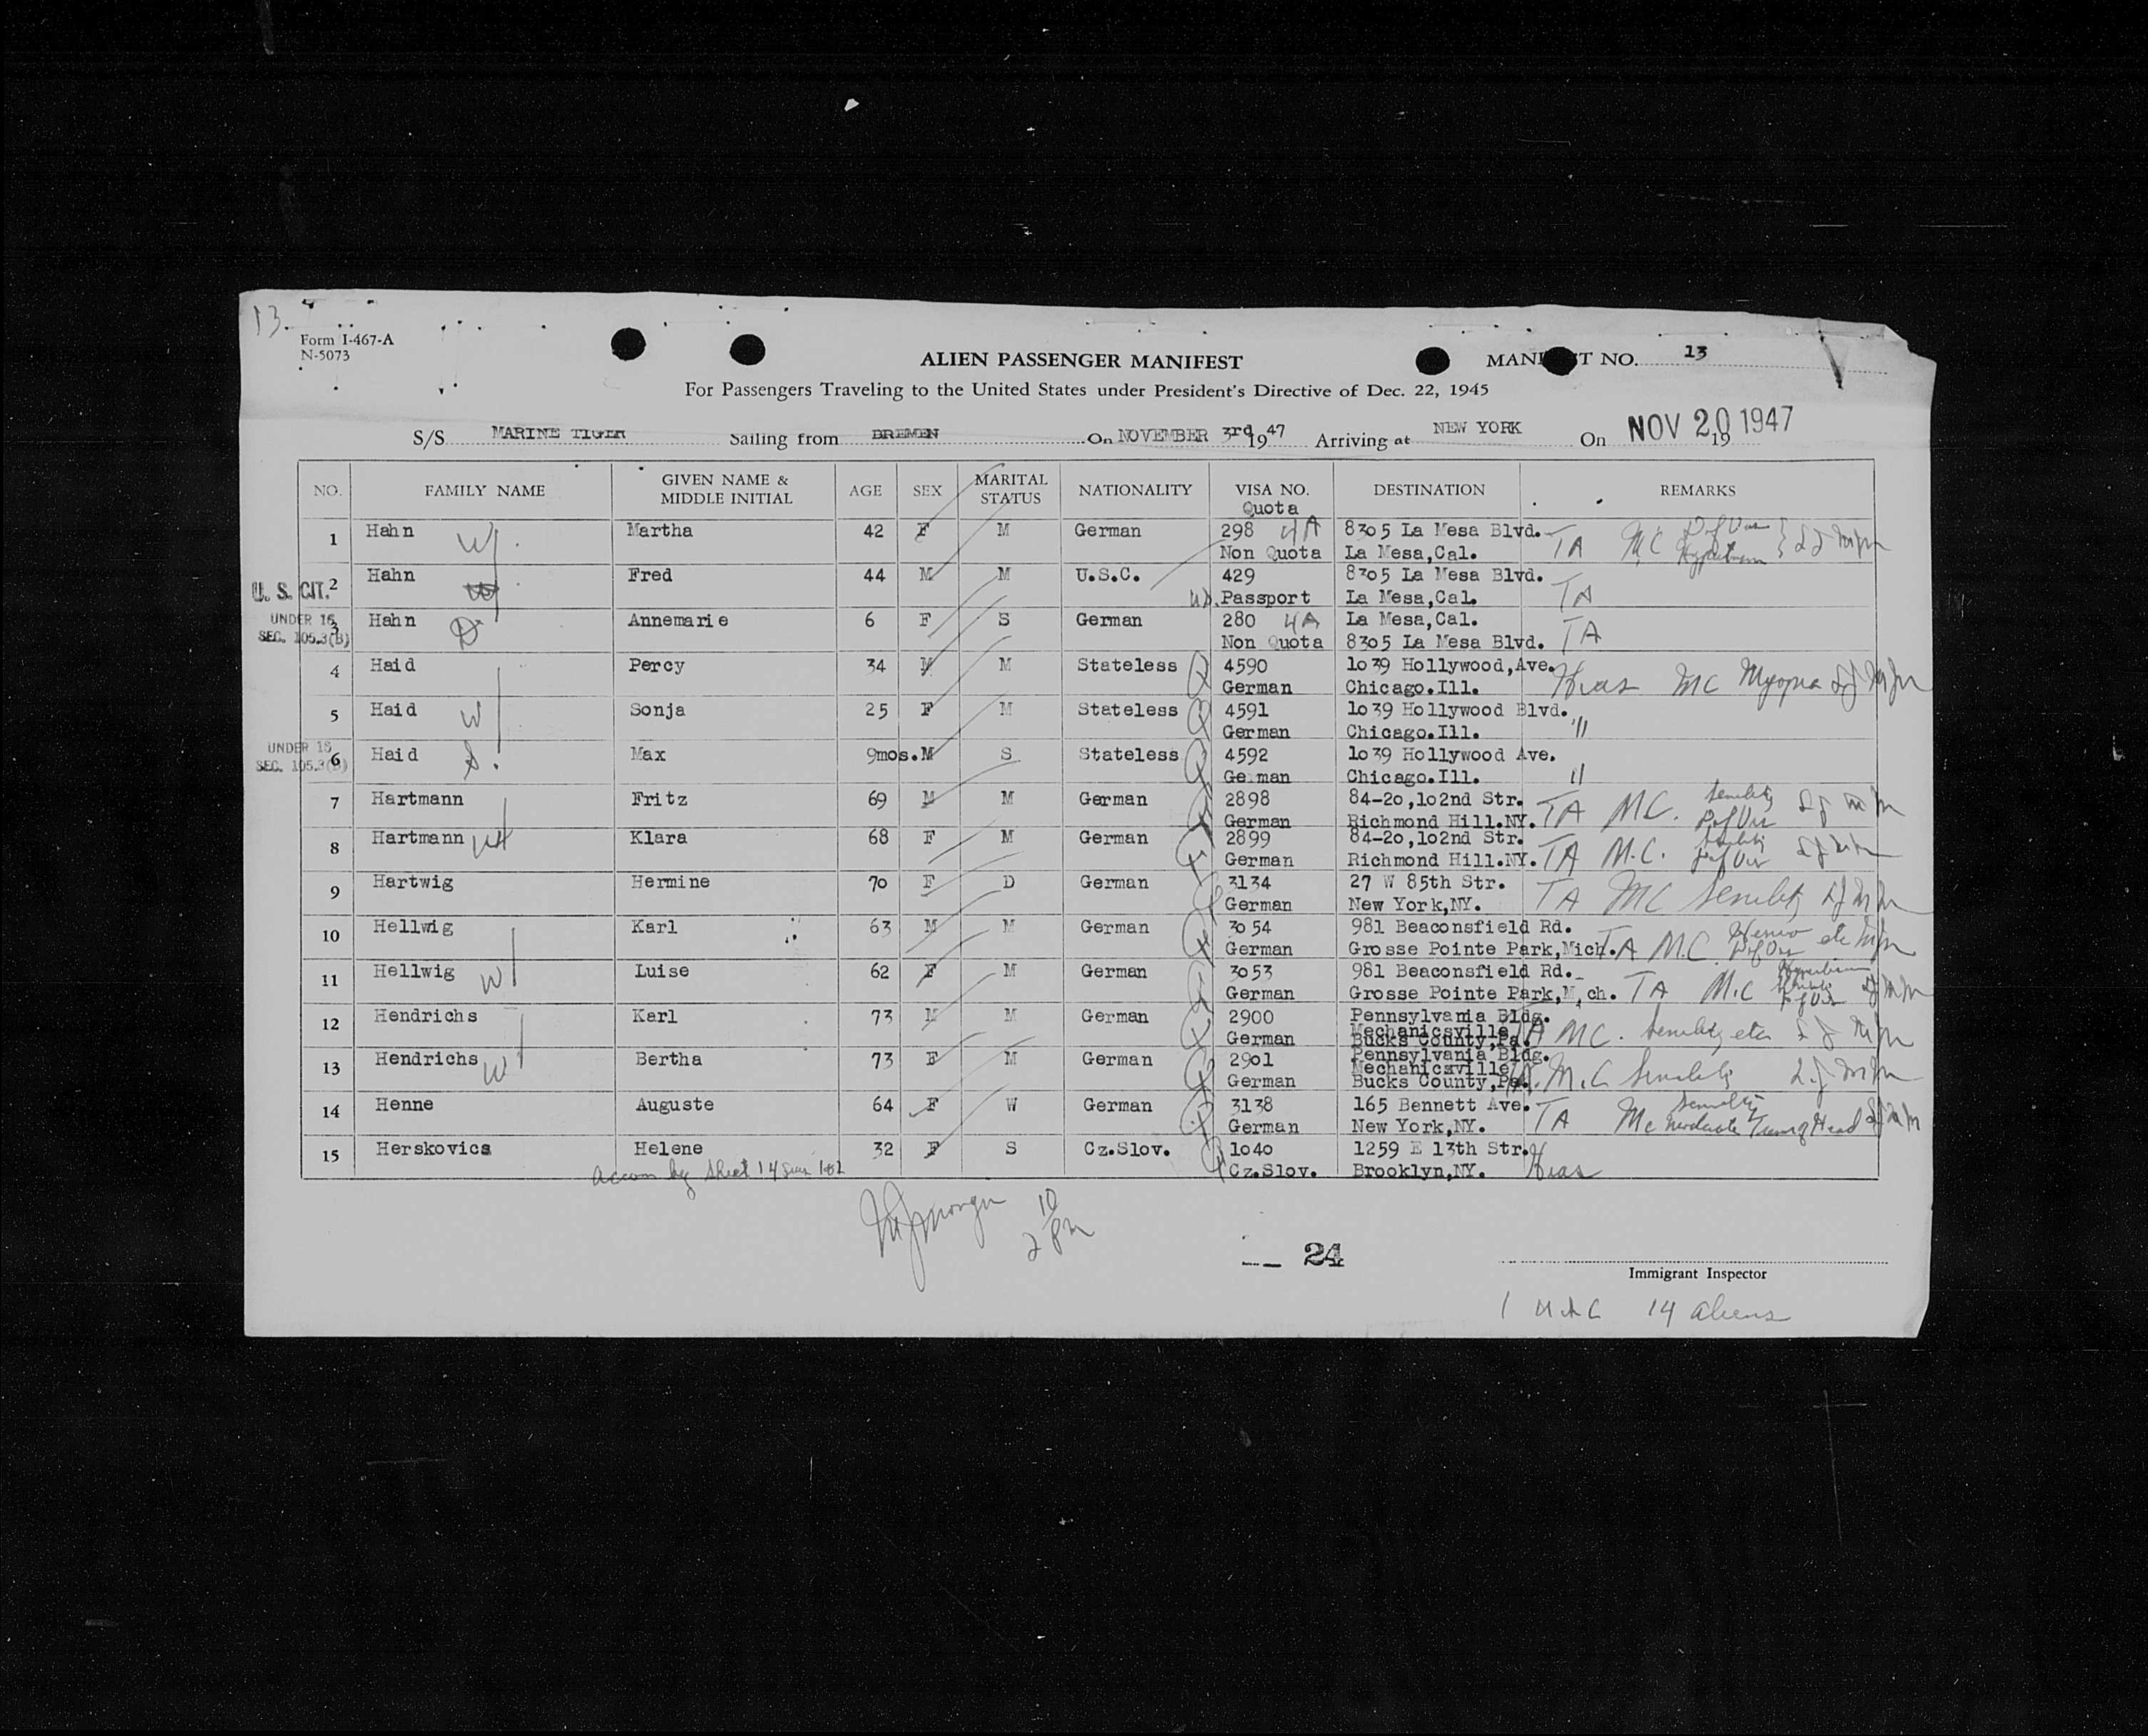 13.
Form I-467-A
N-5073
ALIEN PASSENGER MANIFEST
MANI T NO. 13
For Passengers Traveling to the United States under President's Directive of Dec. 22, 1945
S/S MARINE TIGER Sailing from BREMEN On NOVEMBER 3rd 1947 Arriving at NEW YORK On NOV 20 1947 19
NO. FAMILY NAME GIVEN NAME & MIDDLE INITIAL AGE SEX MARITAL STATUS NATIONALITY VISA NO. DESTINATION REMARKS
Quota
1 Hahn W Martha 42 F M German 298 4A 8305 La Mesa Blvd. TA MC
Non Quota La Mesa,Cal.
U. S. CIT. 2 Hahn Fred 44 M M U.S.C. 429 8305 La Mesa Blvd. TA
Passport La Mesa,Cal.
UNDER 16 SEC. 105.3(B) 3 Hahn D Annemarie 6 F S German 280 4A La Mesa,Cal. TA
Non Quota 8305 La Mesa Blvd.
4 Haid Percy 34 M M Stateless Q 4590 1039 Hollywood,Ave. Hias MC Myopia
German Chicago.Ill.
5 Haid W Sonja 25 F M Stateless Q 4591 1039 Hollywood Blvd. "
German Chicago.Ill.
UNDER 16 SEC. 105.3(B) 6 Haid S. Max 9mos. M S Stateless Q 4592 1039 Hollywood Ave. "
Ge man Chicago.Ill.
7 Hartmann Fritz 69 M M German 2898 84-20,102nd Str. TA MC. Senility
German Richmond Hill.NY.
8 Hartmann Klara 68 F M German Q 2899 84-20,102nd Str. TA M.C.
German Richmond Hill.NY.
9 Hartwig Hermine 70 F D German 3134 27 W 85th Str. TA MC Senility
German New York,NY.
10 Hellwig Karl 63 M M German Q 3054 981 Beaconsfield Rd. TA M.C. Hernia etc
German Grosse Pointe Park,Mich.
11 Hellwig W Luise 62 F M German Q 3053 981 Beaconsfield Rd. TA M.C
German Grosse Pointe Park,M,ch.
12 Hendrichs Karl 73 M M German Q 2900 Pennsylvania Bldg. TA MC. Senility, etc
Mechanicsville
German Bucks County,Pa.
13 Hendrichs W Bertha 73 F M German Q 2901 Pennsylvania Bldg. M.C Senility
Mechanicsville
German Bucks County,Pa.
14 Henne Auguste 64 F W German Q 3138 165 Bennett Ave. TA Mc Senility
German New York,NY.
15 Herskovics Helene 32 F S Cz.Slov. Q 1040 1259 E 13th Str. Hias
Cz.Slov. Brooklyn,NY.
accom by Sheet 14
10
2 pm
24
Immigrant Inspector
1 14 aliens